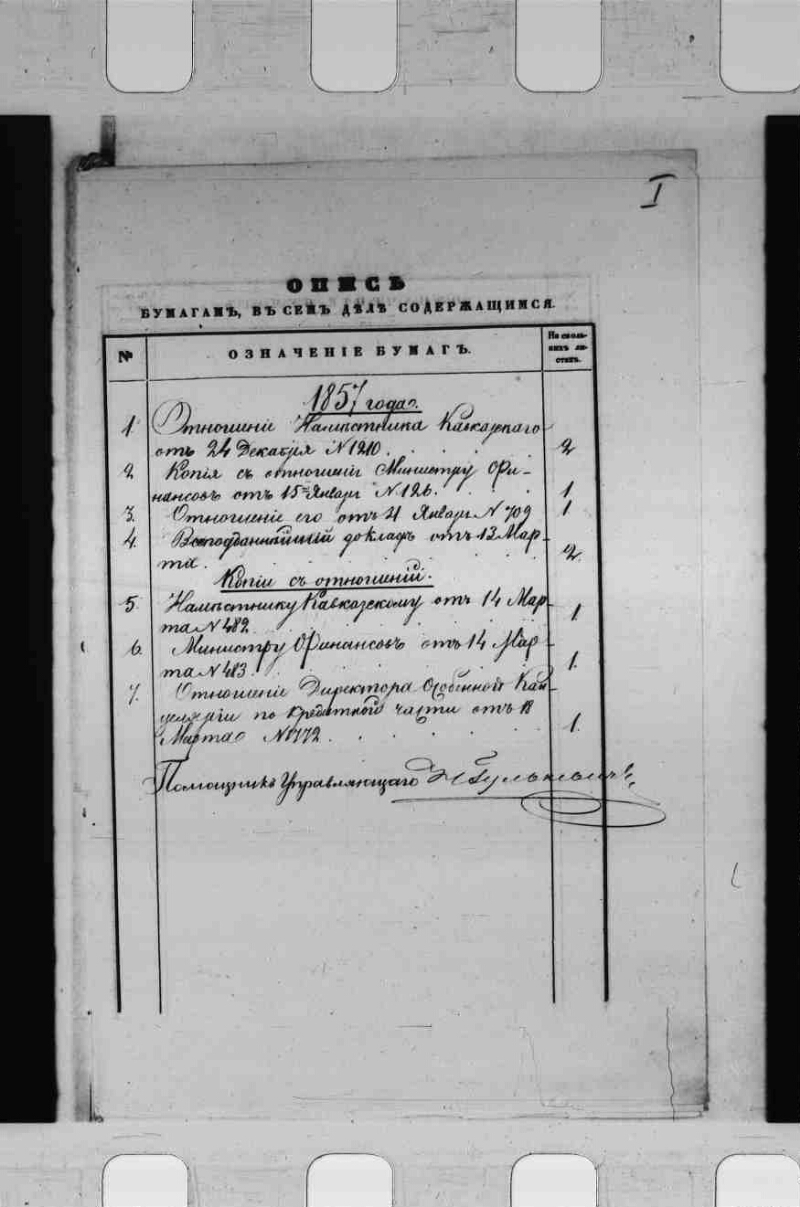 I
ОПИСЬ
БУМАГАМЪ, ВЪ СЕМЪ ДѢЛѢ СОДЕРЖАЩИМСЯ.
№ ОЗНАЧЕНІЕ БУМАГЪ. На сколь-
кихъ ли-
стахъ.
1857 года.
1 Отношеніе Намѣстника Кавказскаго
отъ 24 Декабря N 1210. 2
2 Копія съ отношенія Министру Фи-
нансовъ отъ 15го Января N 126. 1
3. Отношеніе его отъ 21 Января N 709 1
4. Всеподданнѣйшій докладъ отъ 13 Мар-
та. 2.
Копіи съ отношеній:
5. Намѣстнику Кавказскому отъ 14 Мар-
та N 482. 1
6. Министру Финансовъ отъ 14 Мар-
та N 483. 1.
7. Отношеніе Директора Особенной Кан-
целяріи по Кредитной части отъ 18
Марта N 1772. 1.
Помощникъ Управляющаго Гулькевичъ